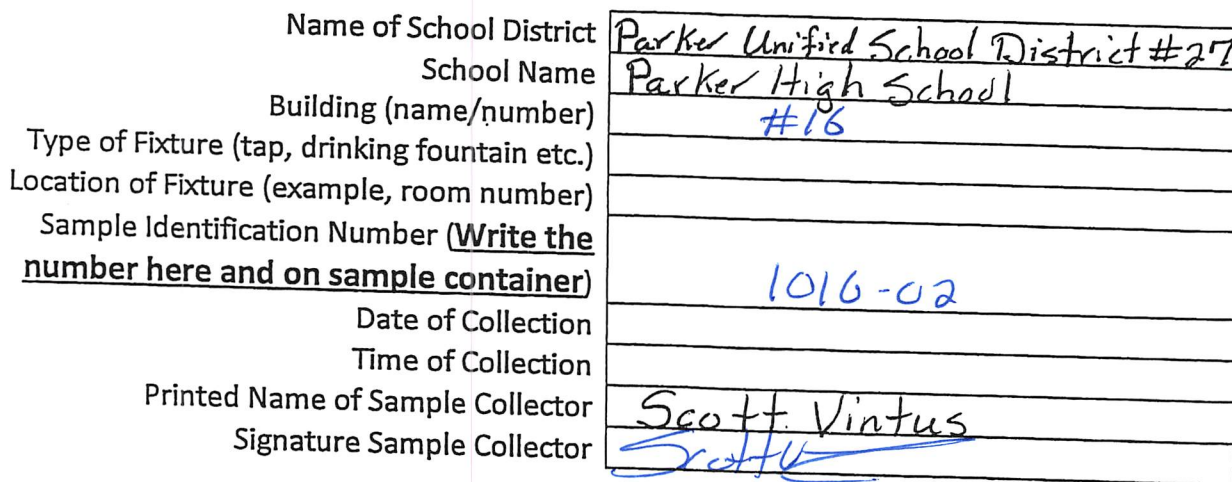 Name of School District Parker Unified School District #27
School Name Parker High School
Building (name/number) #16
Type of Fixture (tap, drinking fountain etc.)
Location of Fixture (example, room number)
Sample Identification Number (Write the
number here and on sample container) 1016-02
Date of Collection
Time of Collection
Printed Name of Sample Collector Scott Vintus
Signature Sample Collector Scott V